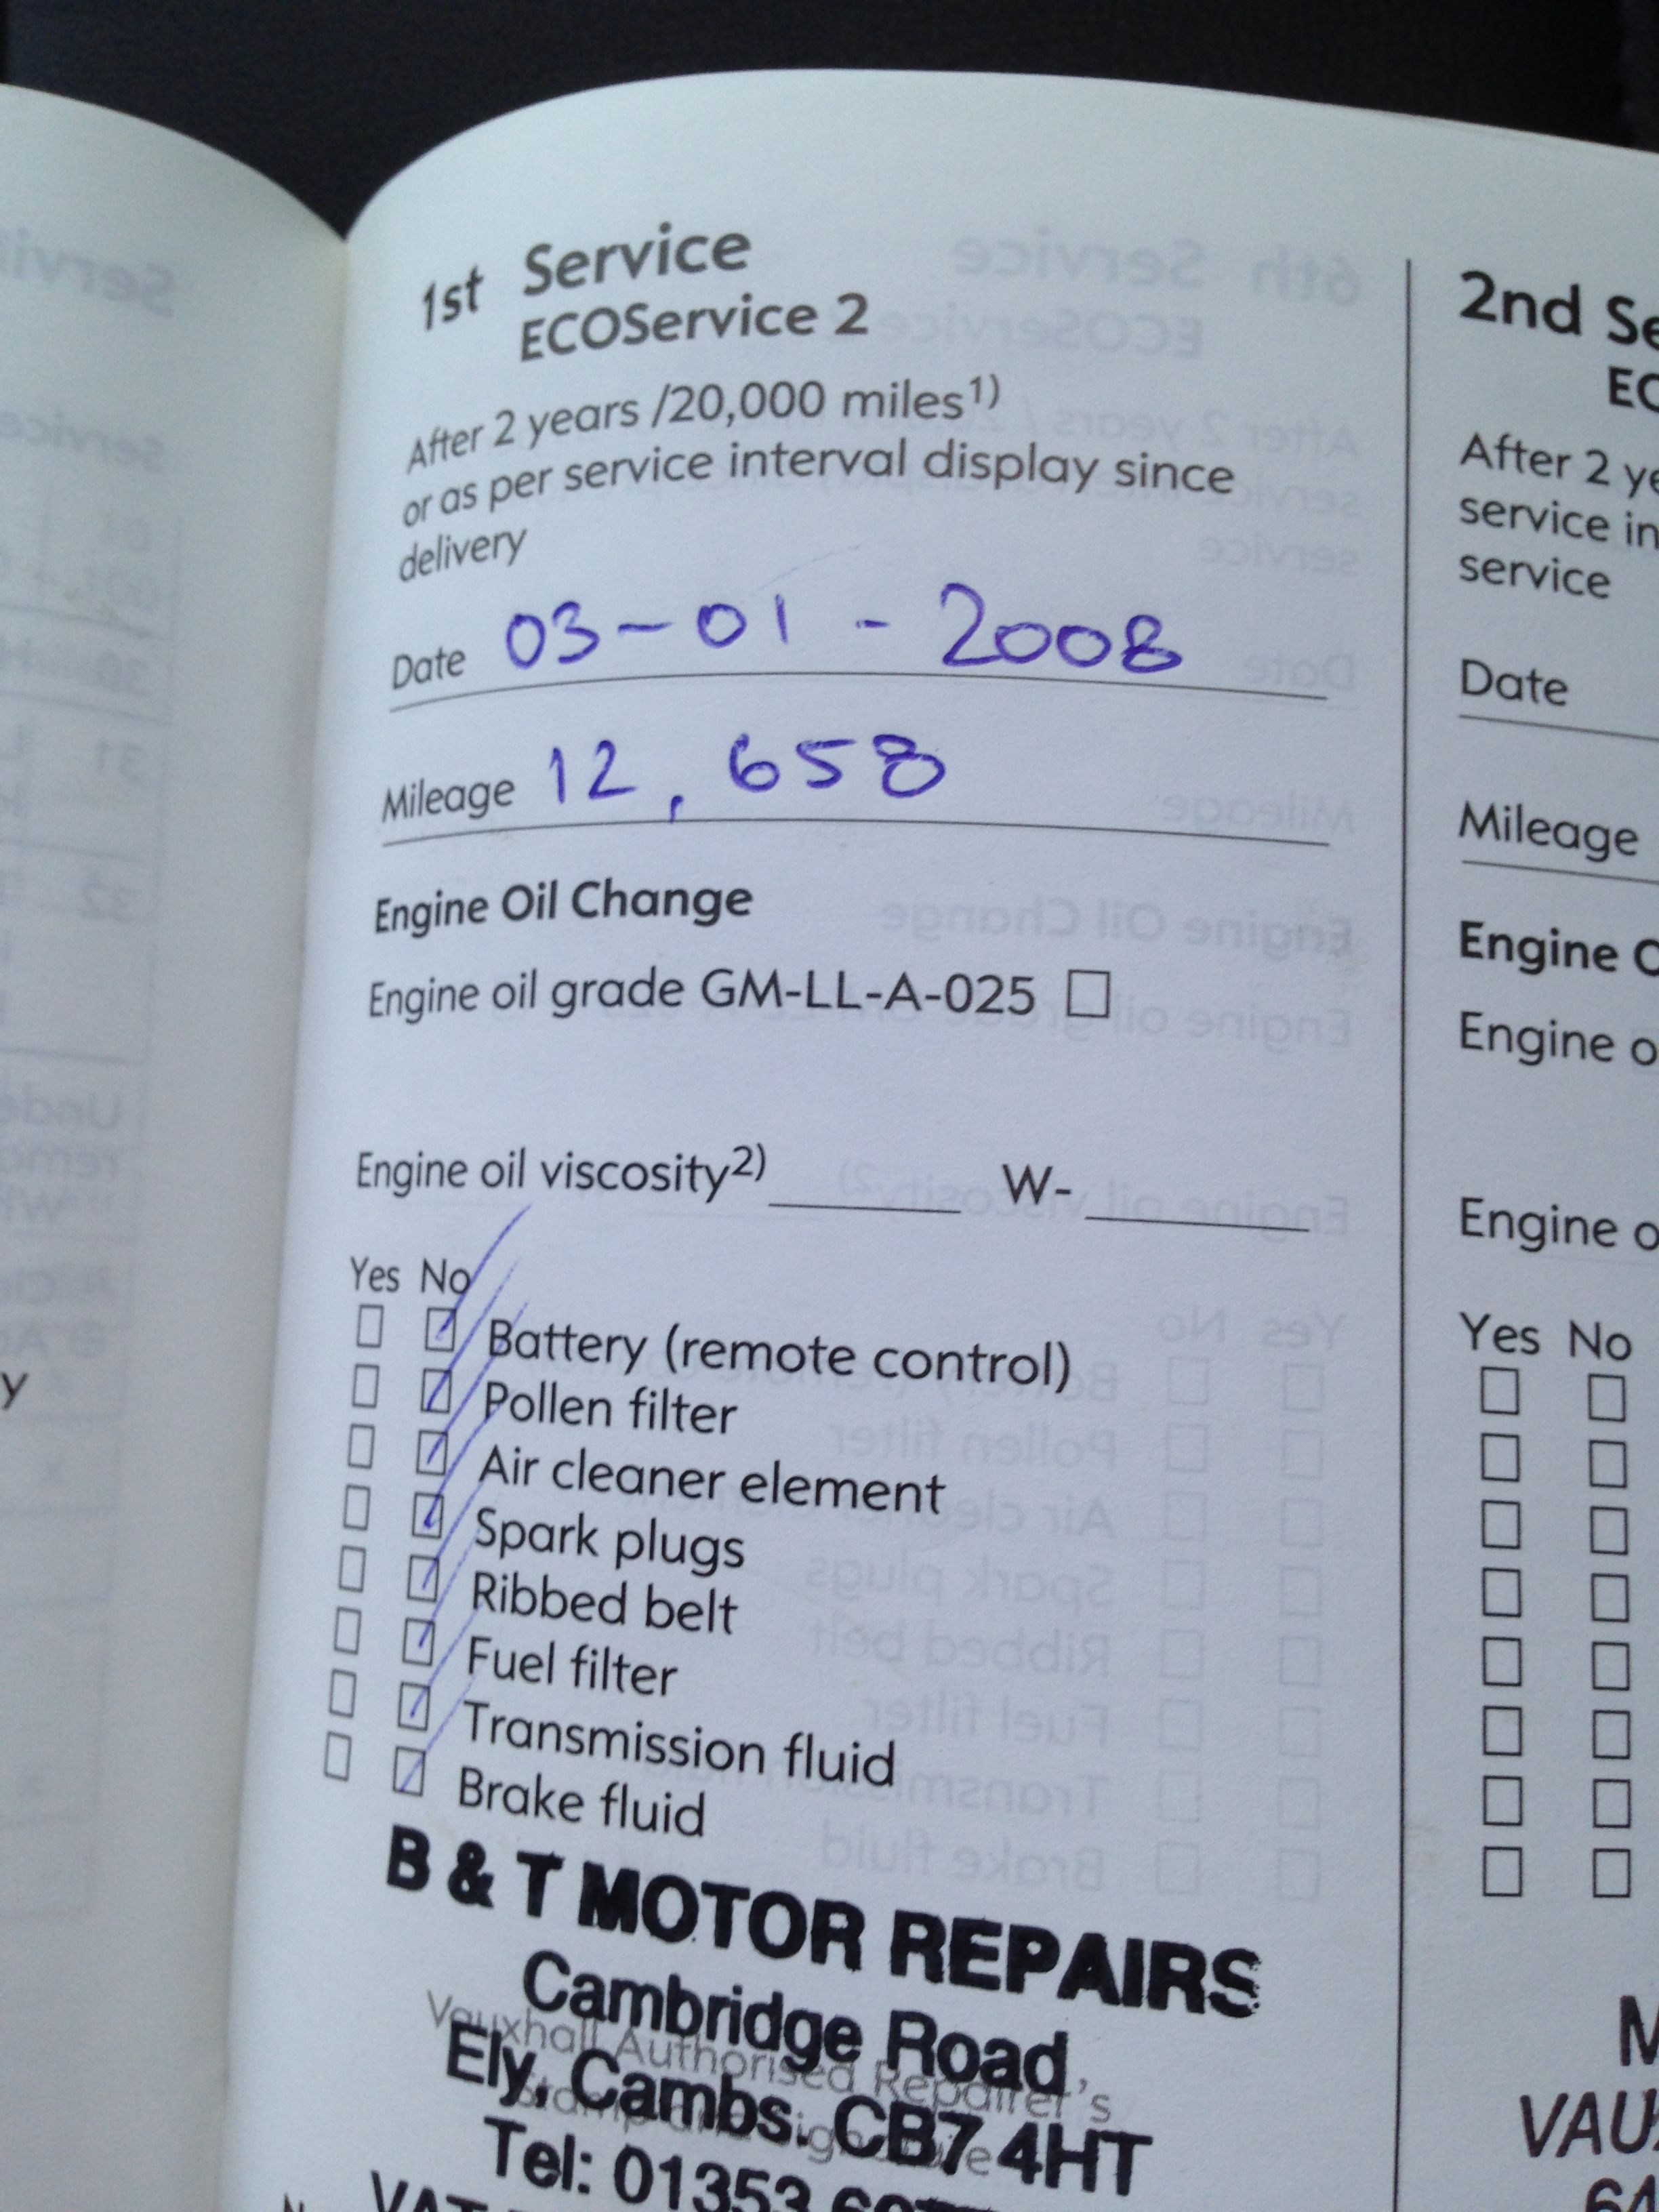 1st Service
ECOService 2
After 2 years /20,000 miles1)
or as per service interval display since
delivery
Date 03-01-2008
Mileage 12,658
Engine Oil Change
Engine oil grade GM-LL-A-025
Engine oil viscosity2) W-
Yes No
Battery (remote control)
Pollen filter
Air cleaner element
Spark plugs
Ribbed belt
Fuel filter
Transmission fluid
Brake fluid
B & T MOTOR REPAIRS
Cambridge Road,
Vauxhall Authorised Repairer's
Ely, Cambs. CB7 4HT
Tel: 01353
VAT
2nd Se
EC
After 2 ye
service in
service
Date
Mileage
Engine O
Engine o
Engine o
Yes No
M
VAUX
64
y